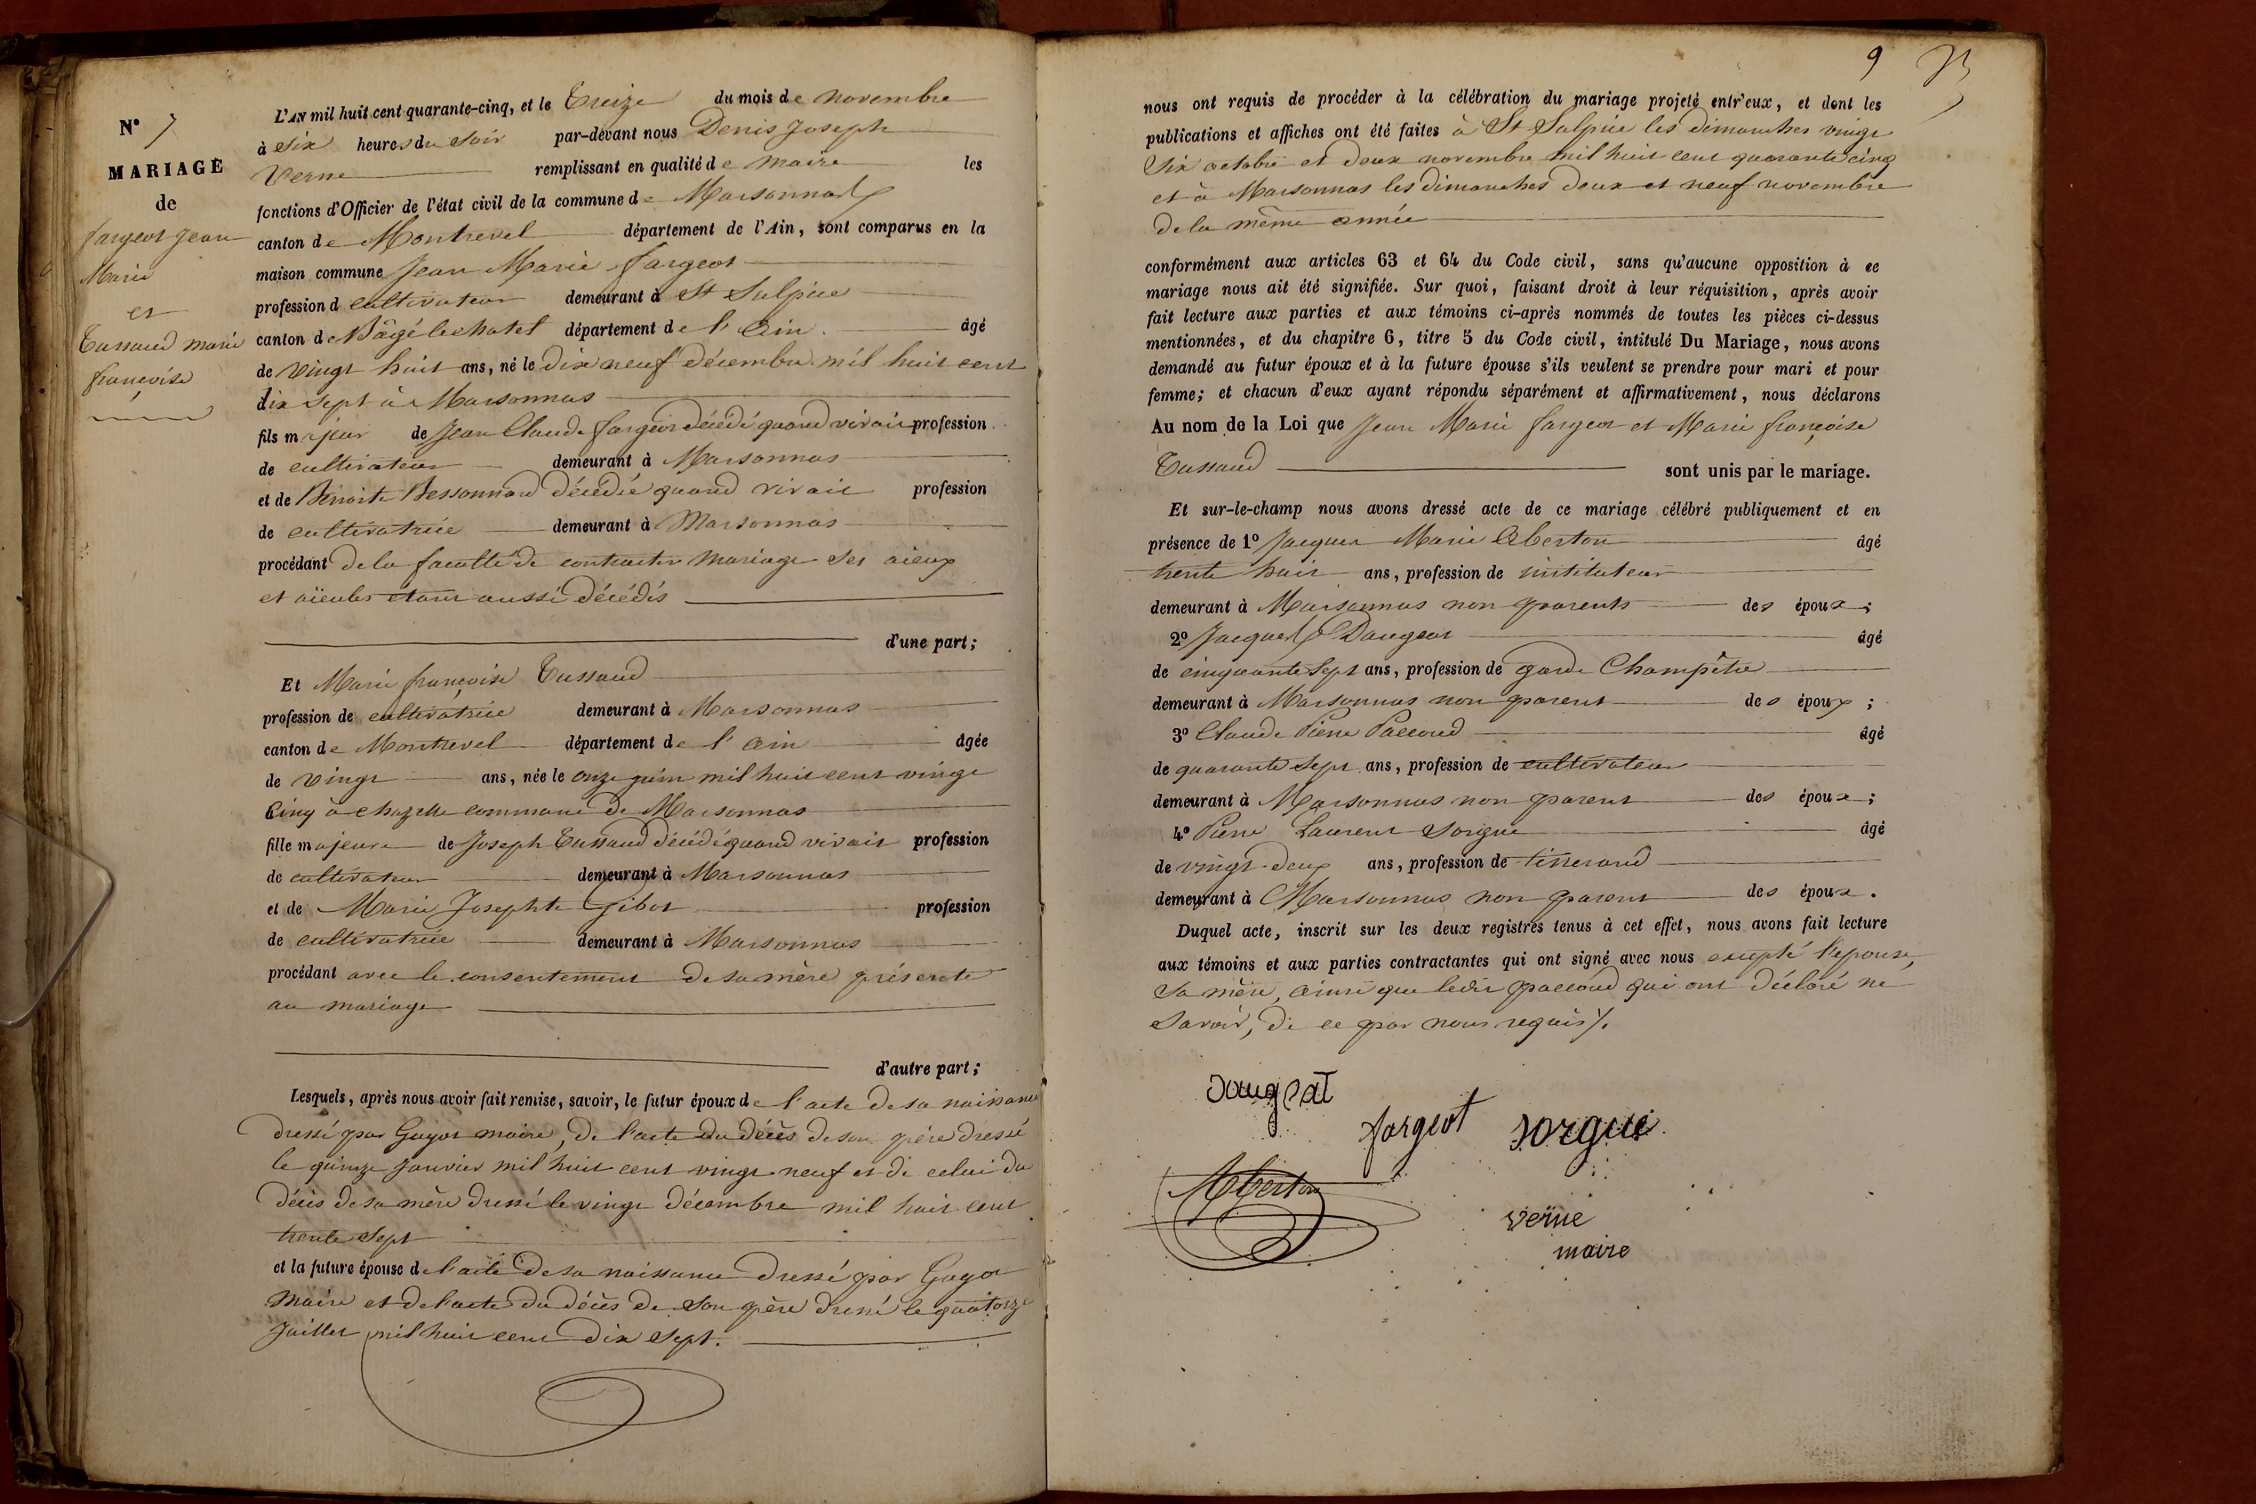 N° 7
MARIAGE
de
fargeot Jean
Marie
et
Tussaud marie
françoise
L'AN mil huit cent quarante-cinq, et le Treize du mois de novembre
à six heures du soir par-devant nous Denis Joseph
Verne remplissant en qualité de maire les
fonctions d'Officier de l'état civil de la commune de Marsonnas
canton de Montrevel département de l'Ain, sont comparus en la
maison commune Jean Marie fargeot
profession d cultivateur demeurant à St Sulpice
canton de Bâgé le chatel département de l'Ain. âgé
de vingt huit ans, né le dix neuf décembre mil huit cent
dix sept à Marsonnas
fils majeur de Jean Claude fargeot décédé quand vivait profession
de cultivateur demeurant à Marsonnas
et de Benoite Bessonnard décédée quand vivait profession
de cultivatrice demeurant à Marsonnas
procédant de la faculté de contracter mariage ses aïeux
et aïeules étant aussi décédés
d'une part;
Et Marie françoise Tussaud
profession de cultivatrice demeurant à Marsonnas
canton de Montrevel département de l'Ain âgée
de vingt ans, née le onze juin mil huit cent vingt
Cinq à chazelle commune de Marsonnas
fille majeure de Joseph Tussaud décédé quand vivait profession
de cultivateur demeurant à Marsonnas
et de Marie Josephte Gibot profession
de cultivatrice demeurant à Marsonnas
procédant avec le consentement de sa mère présente
au mariage
d'autre part;
Lesquels, après nous avoir fait remise, savoir, le futur époux de l'acte de sa naissance
dressé par Guyot maire, de l'acte du décès de son père dressé
le quinze Janvier mil huit cent vingt neuf et de celui du
décès de sa mère dressé le vingt décembre mil huit cent
trente sept
et la future épouse de l'acte de sa naissance dressé par Guyot
Maire et de l'acte du décès de son père dressé le quatorze
Juillet mil huit cent dix sept.
9
nous ont requis de procéder à la célébration du mariage projeté entr'eux, et dont les
publications et affiches ont été faites à St Sulpice les dimanches vingt
Six octobre et deux novembre mil huit cent quarante cinq
et à Marsonnas les dimanches deux et neuf novembre
de la même année
conformément aux articles 63 et 64 du Code civil, sans qu'aucune opposition à ce
mariage nous ait été signifiée. Sur quoi, faisant droit à leur réquisition, après avoir
fait lecture aux parties et aux témoins ci-après nommés de toutes les pièces ci-dessus
mentionnées, et du chapitre 6, titre 5 du Code civil, intitulé Du Mariage, nous avons
demandé au futur époux et à la future épouse s'ils veulent se prendre pour mari et pour
femme; et chacun d'eux ayant répondu séparément et affirmativement, nous déclarons
Au nom de la Loi que Jean Marie fargeot et Marie françoise
Tussaud sont unis par le mariage.
Et sur-le-champ nous avons dressé acte de ce mariage célébré publiquement et en
présence de 1° Jacques Marie Aberton âgé
trente huit ans, profession de instituteur
demeurant à Marsonnas non parents des époux;
2° Jacques Daugeat âgé
de cinquante sept ans, profession de garde Champêtre
demeurant à Marsonnas non parent des époux;
3° Claude Pierre Paccoud âgé
de quarante sept ans, profession de cultivateur
demeurant à Marsonnas non parent des époux;
4° Pierre Laurent Sorgue âgé
de vingt deux ans, profession de tisserand
demeurant à Marsonnas non parent des époux.
Duquel acte, inscrit sur les deux registres tenus à cet effet, nous avons fait lecture
aux témoins et aux parties contractantes qui ont signé avec nous excepté l'épouse,
Sa mère, ainsi que ledit paccoud qui ont déclaré ne
savoir, de ce par nous requis /.
Daugeat
fargeot
sorgue
Aberton
verne
maire